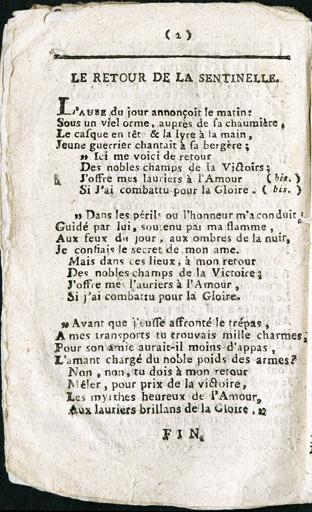 ( 2 )
LE RETOUR DE LA SENTINELLE.
L'AUBE du jour annonçoit le matin:
Sous un viel orme, auprès de sa chaumière,
Le casque en tête & la lyre à la main,
Jeune guerrier chantait à sa bergère;
» Ici me voici de retour
Des nobles champs de la Victoirs;
J'offre mes lauriers à l'Amour ( bis. )
Si J'ai combattu pour la Gloire. ( bis. )
» Dans les périls ou l'honneur m'a conduit;
Guidé par lui, soutenu par ma flamme,
Aux feux du jour, aux ombres de la nuit,
Je confiais le secret de mon ame.
Mais dans ces lieux, à mon retour
Des nobles champs de la Victoire;
J'offre mes l'auriers à l'Amour,
Si j'ai combattu pour la Gloire.
» Avant que j'eusse affronté le trépas,
A mes transports tu trouvais mille charmes,
Pour son amie aurait-il moins d'appas,
L'amant chargé du noble poids des armes?
Non, non, tu dois à mon retour
Mêler, pour prix de la victoire,
Les myrthes heureux de l'Amour,
Aux lauriers brillans de la Gloire. »
FIN.